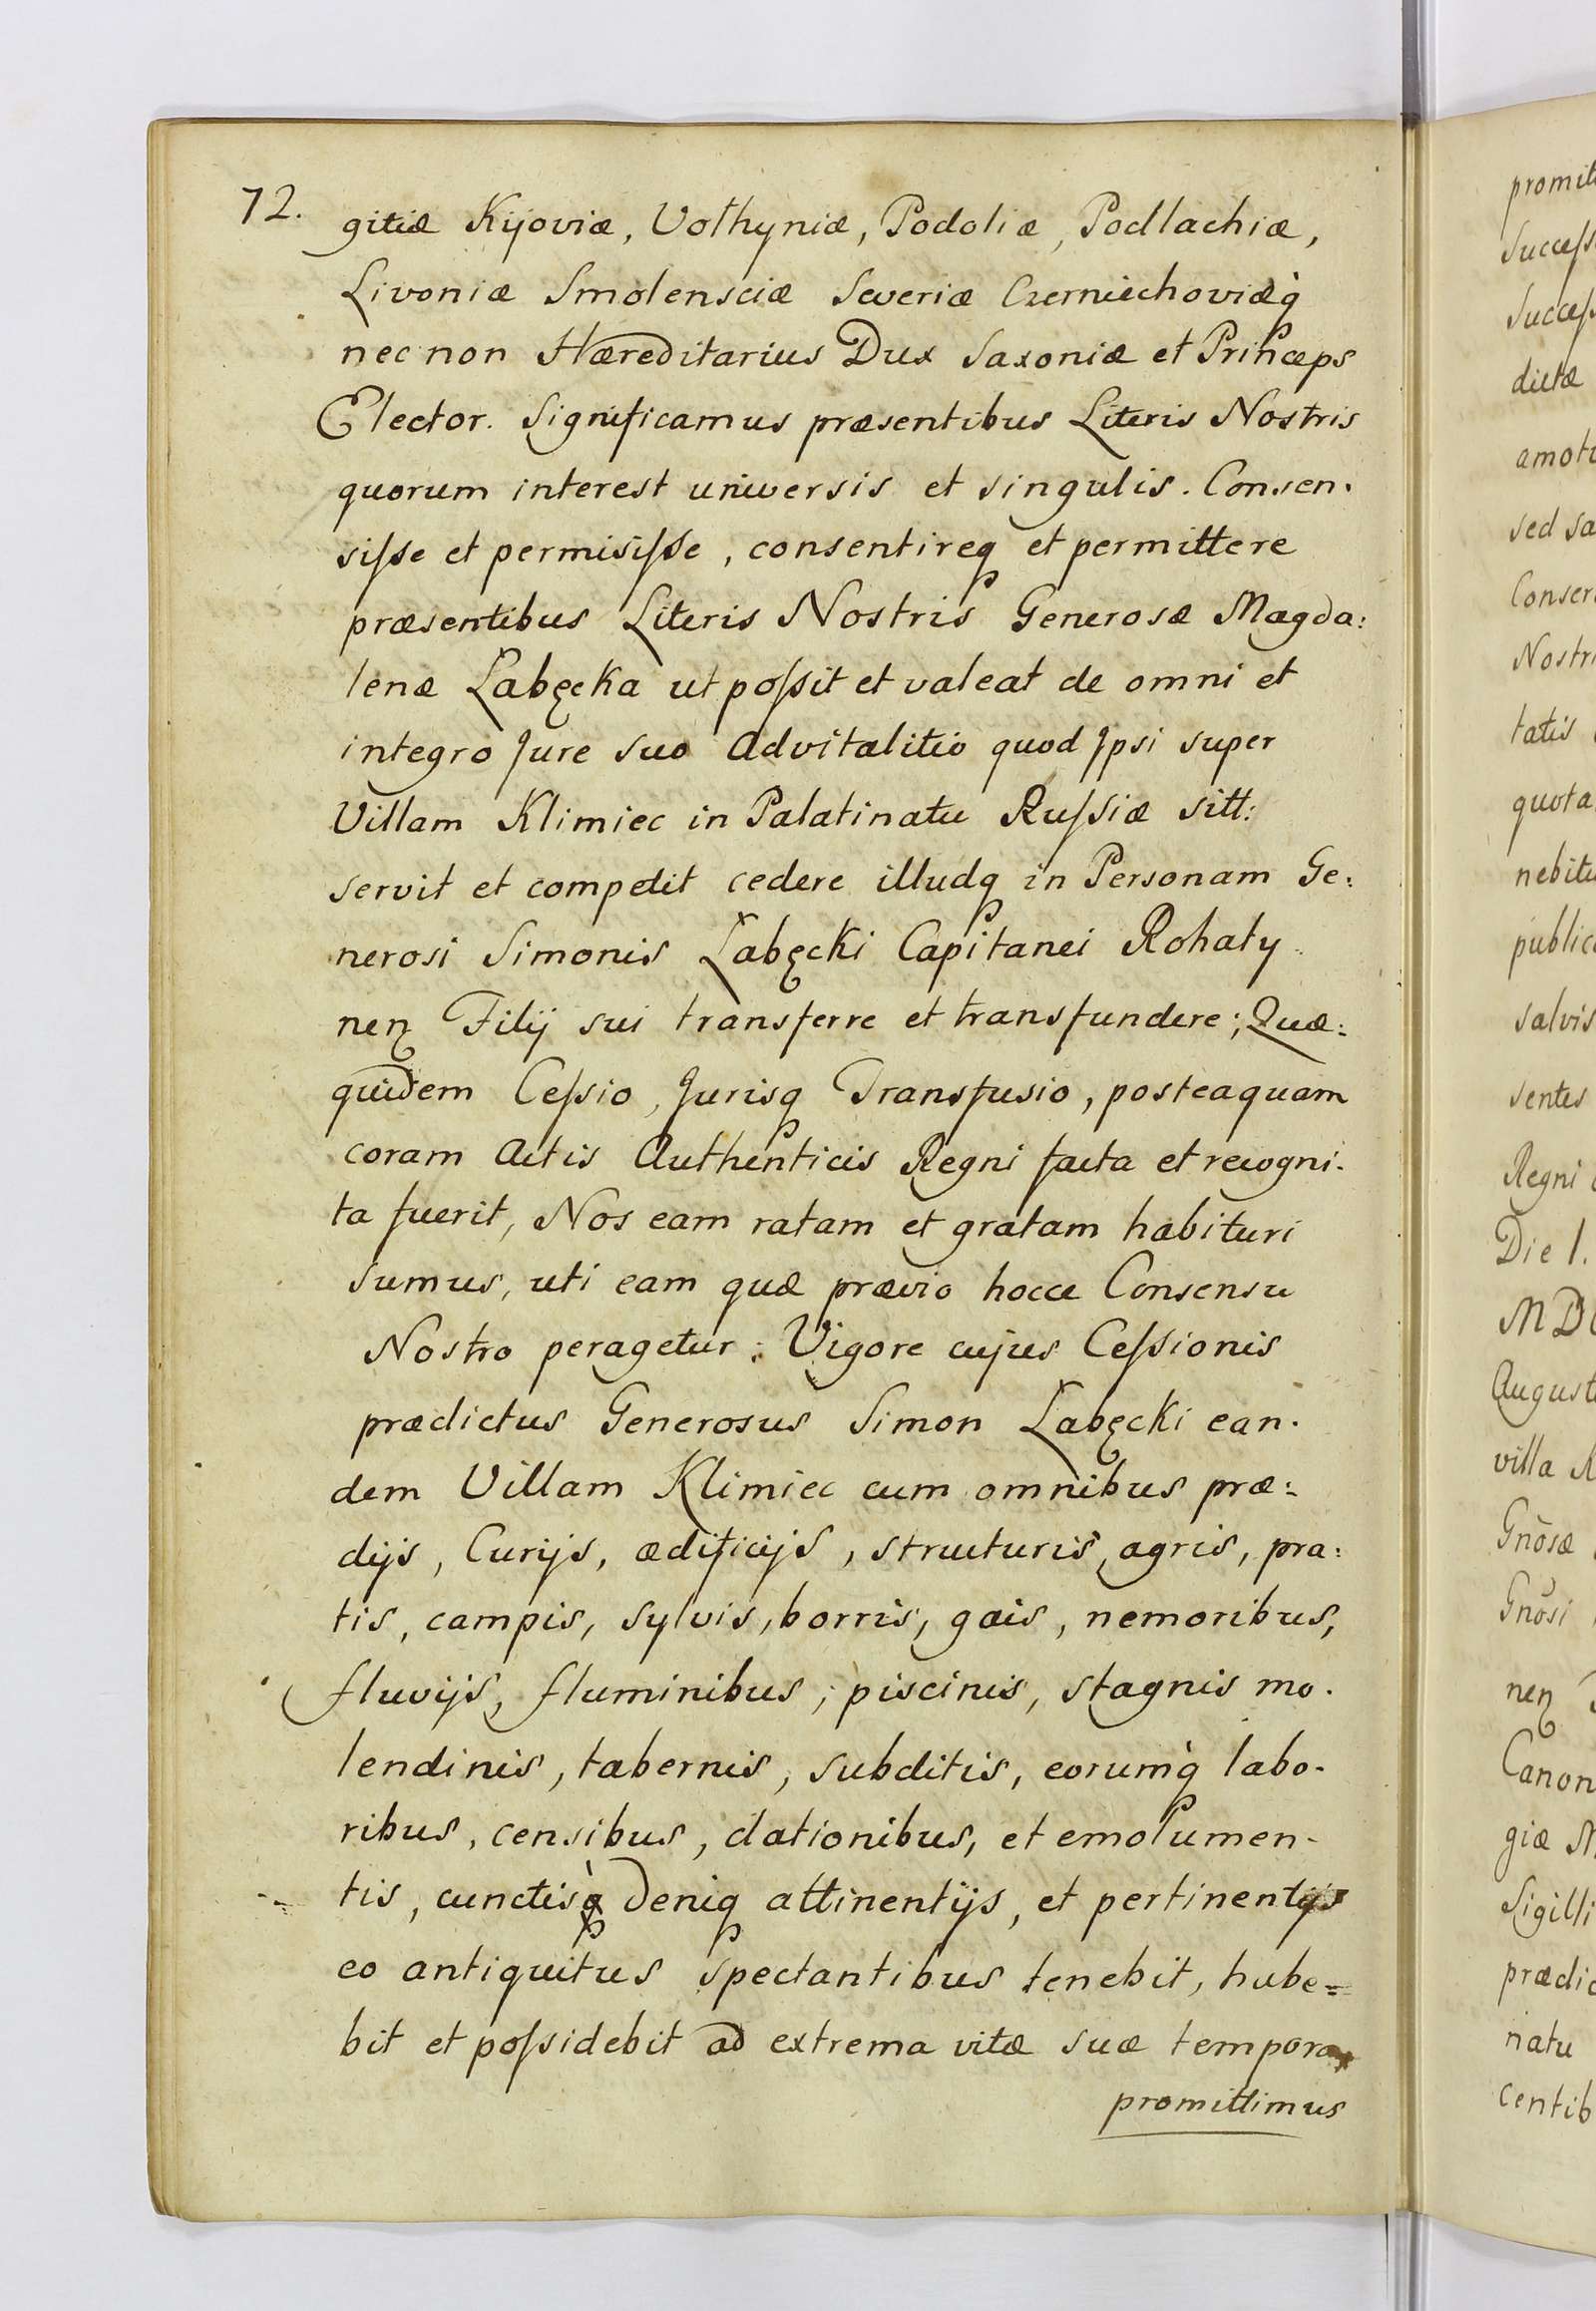 72.
gitiæ Kijoviæ, Volhyniæ, Podoliæ, Podlachiæ,
Livoniæ Smolensciæ Severiæ Czerniechoviæq̀
nec non Hæreditarius Dux Saxoniæ et Princeps
Elector. Significamus præsentibus Literis Nostris
quorum interest universis et singulis. Consen.
siſse et permisiſse, consentireq et permittere
præsentibus Literis Nostris Generosæ Magda:
lenæ Łabęcka ut poſsit et valeat de omni et
integro Jure suo Advitalitio quod Jpsi super
Villam Klimiec in Palatinatu Ruſsiæ sitt:
servit et competit cedere illudq in Personam Ge:
nerosi Simonis Łabęcki Capitanei Rohaty.
neꝝ Filij sui transferre et transfundere; Quæ:
quidem Ceſsio, Jurisq Transfusio, posteaquam
coram Actis Authenticis Regni facta et recogni.
ta fuerit, Nos eam ratam et gratam habituri
sumus, uti eam quæ prævio hocce Consensu
Nostro peragetur; Vigore cujus Ceſsionis
prædictus Generosus Simon Łabęcki ean.
dem Villam Klimiec cum omnibus præ:
dijs, Curijs, ædificijs, structuris, agris, pra:
tis, campis, sylvis, borris, gais, nemoribus,
fluvijs, fluminibus, piscinis, stagnis mo.
lendinis, tabernis, subditis, eorumq̀ labo.
ribus, censibus, dationibus, et emolumen-
tis, cunctisq̀ deniq attinentijs, et pertinentijs
eo antiquitus spectantibus tenebit, habe=
bit et poſsidebit ad extrema vitæ suæ tempora
promittimus
promit
Succeſs
Succeſs
dictæ
amot
sed sa
Conser
Nostr
tatis
quota
nebitu
public
salvis
sentes
Regni
Die 1.
MD
August
villa R
Gnõsæ
Gnõsi
neꝝ
Canon
giæ
Sigilli
prædic
natu
centib